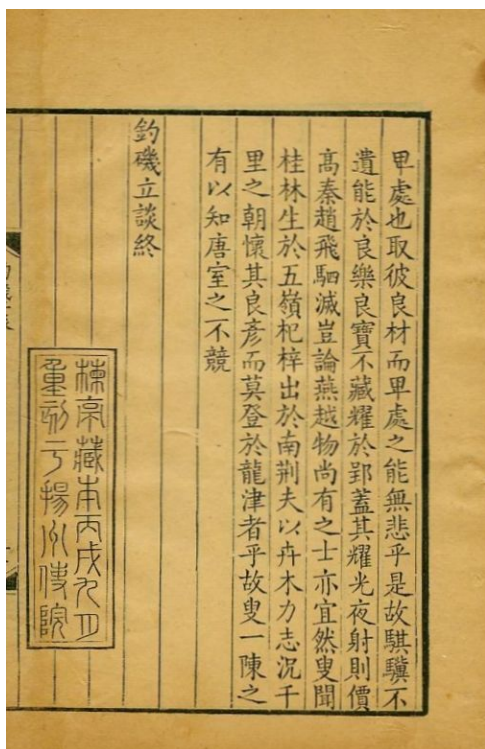 甲處也取彼良材而甲處之能無悲乎是故騏驥不
遺能於良樂良寶不藏耀於郢蓋其耀光夜射則價
髙秦趙飛駟滅豈論燕越物尚有之士亦宜然叟聞
桂林生於五嶺杞梓出於南荆夫以卉木力志沉千
里之朝懷其良彦而莫登於龍津者乎故叟一陳之
有以知唐室之不競
釣磯立談終
楝亭藏本丙戌九月
重刻于揚州使院